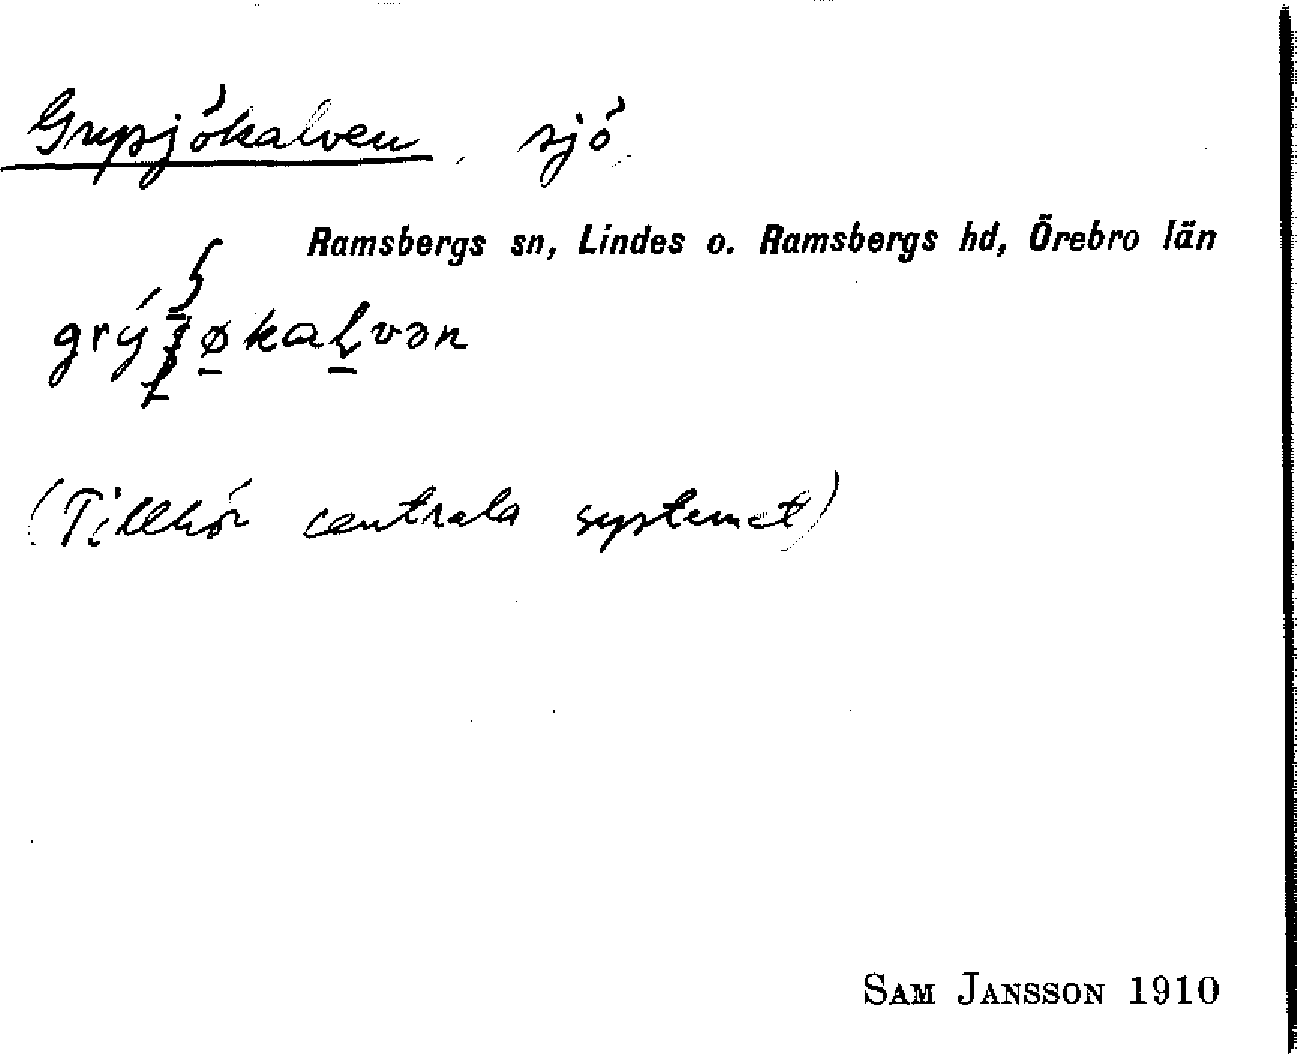 Grysjökalven, sjö
Ramsbergs sn, Lindes o. Ramsbergs hd, Örebro län
(Tillhör centrala systemet)
SAM JANSSON 1910